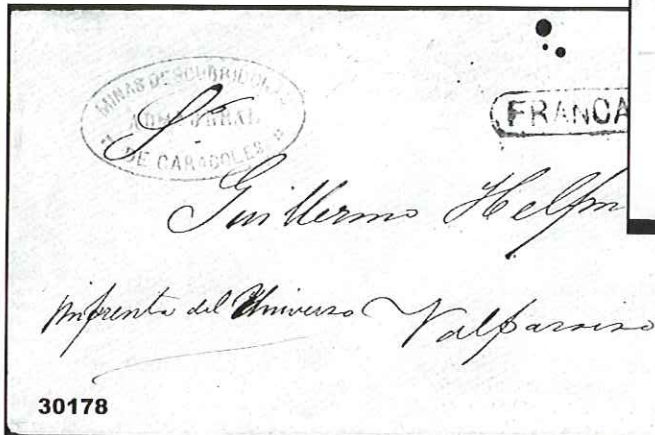 MINAS DESCUBRIDORAS
DE CARACOLES
FRANCA
Sr
Guillermo Helfm
Imprenta del Universo Valparaiso
30178